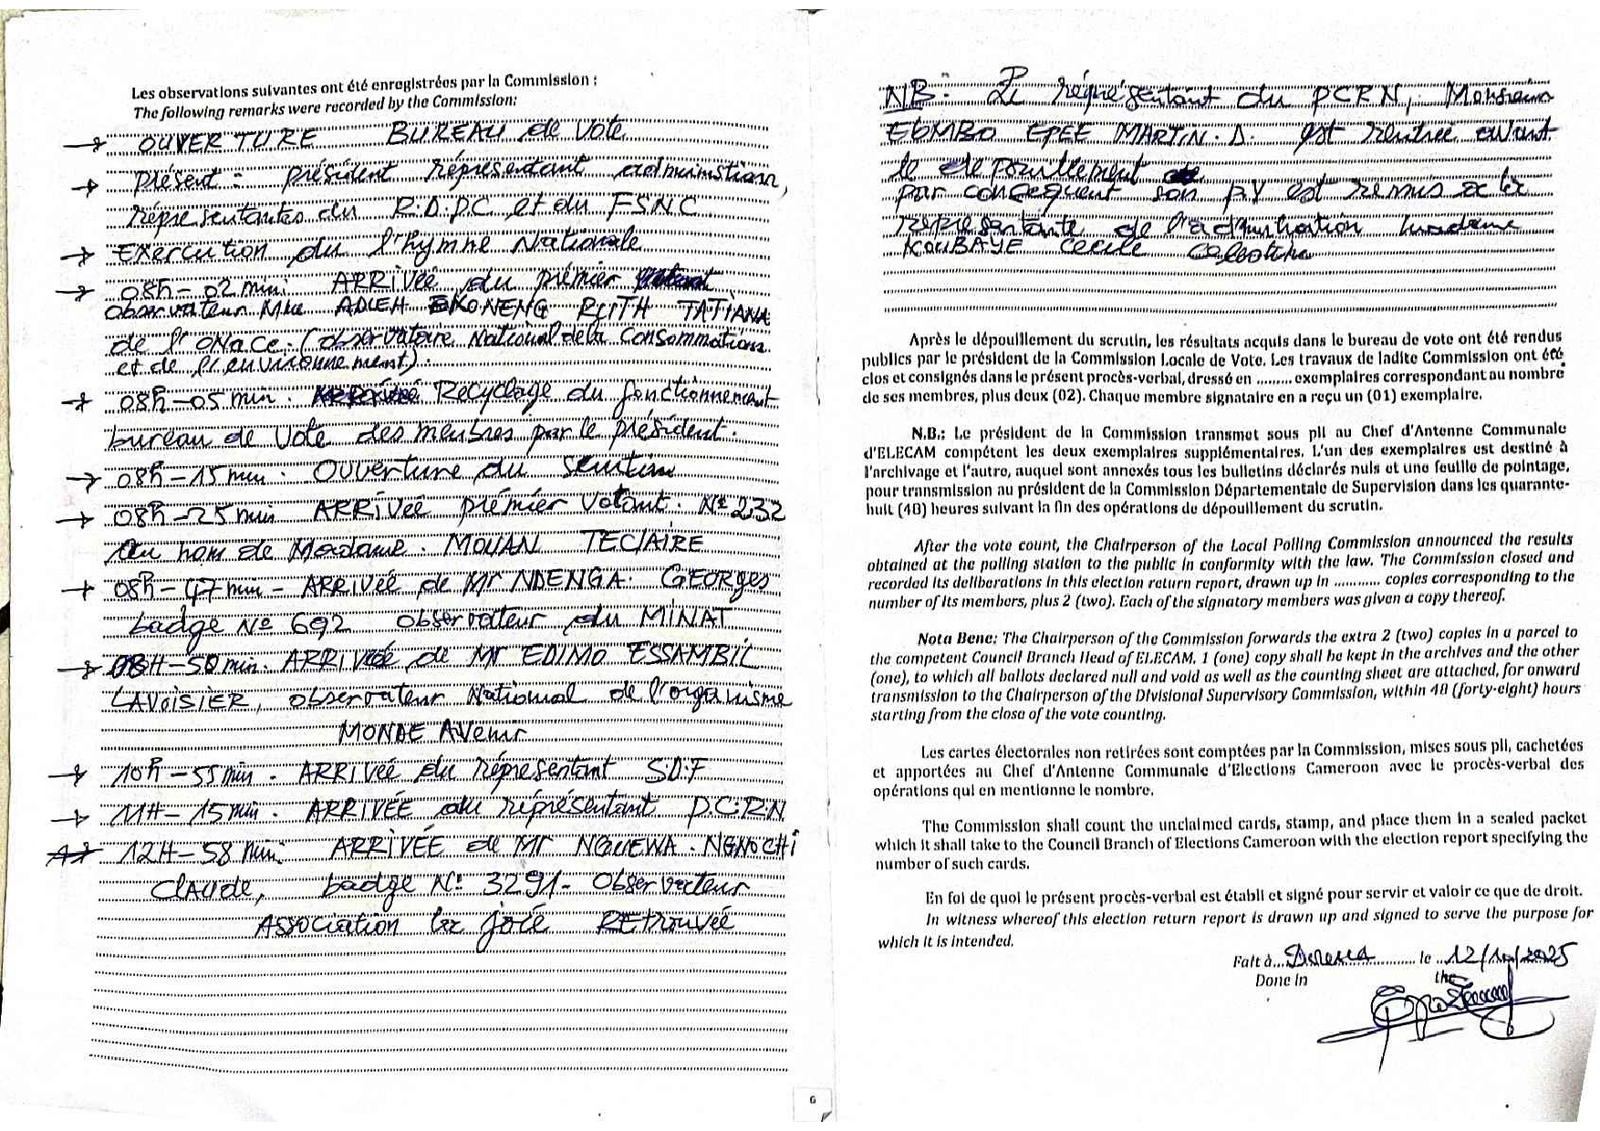 Les observations suivantes ont été enregistrées par la Commission :
The following remarks were recorded by the Commission:
→ OUVERTURE BUREAU de vote
→ Présent : président répresentant administion,
réprésentantes du R.D.P.C et du FSNC
→ EXERCUTION du l'hymne Nationale
→ 08h-02 min. ARRIVÉE du prémier
observateur Mlle ADLEH EKONENG RUTH TATIANA
de l'ONACE (observatoire National de la Consommations
et de l'environnement).
→ 08h-05 min. Recyclage du fonctionnement
bureau de vote des membres par le président.
→ 08h-15 min. Ouverture du scrutin
→ 08h-25 min ARRIVÉE prémier votant. N° 232
au nom de Madame. MOUAN TECLAIRE
→ 08h-47 min - ARRIVÉE de Mr NDENGA. GEORGES
badge N° 692 observateur du MINAT
→ 08H-50 min. ARRIVÉE de Mr EDIMO ESSAMBIL
LAVOISIER, observateur National de l'organisme
MONDE AVenir
→ 10h-55 min. ARRIVÉE du réprésentant S.D.F
→ 11H-15 min. ARRIVÉE du réprésentant P.C.R.N
12H-58 min. ARRIVÉE de Mr NGUEWA. NGNOCHI
CLAUDE, badge N° 3291- Observateur
ASSociation la joie RETrouvée
6
NB: Le réprésentant du PCRN, Monsieur
EBMBO EPEE MARTIN. D. est rentrée avant
le depouillement
par consequent son PV est remis a la
représentante de l'administration madame
KOUBAYE CECILE
Après le dépouillement du scrutin, les résultats acquis dans le bureau de vote ont été rendus
publics par le président de la Commission Locale de Vote. Les travaux de ladite Commission ont été
clos et consignés dans le présent procès-verbal, dressé en ......... exemplaires correspondant au nombre
de ses membres, plus deux (02). Chaque membre signataire en a reçu un (01) exemplaire.
N.B.: Le président de la Commission transmet sous pli au Chef d'Antenne Communale
d'ELECAM compétent les deux exemplaires supplémentaires. L'un des exemplaires est destiné à
l'archivage et l'autre, auquel sont annexés tous les bulletins déclarés nuls et une feuille de pointage,
pour transmission au président de la Commission Départementale de Supervision dans les quarante-
huit (48) heures suivant la fin des opérations de dépouillement du scrutin.
After the vote count, the Chairperson of the Local Polling Commission announced the results
obtained at the polling station to the public in conformity with the law. The Commission closed and
recorded its deliberations in this election return report, drawn up in ........... copies corresponding to the
number of its members, plus 2 (two). Each of the signatory members was given a copy thereof.
Nota Bene: The Chairperson of the Commission forwards the extra 2 (two) copies in a parcel to
the competent Council Branch Head of ELECAM, 1 (one) copy shall be kept in the archives and the other
(one), to which all ballots declared null and void as well as the counting sheet are attached, for onward
transmission to the Chairperson of the Divisional Supervisory Commission, within 48 (forty-eight) hours
starting from the close of the vote counting.
Les cartes électorales non retirées sont comptées par la Commission, mises sous pli, cachetées
et apportées au Chef d'Antenne Communale d'Elections Cameroon avec le procès-verbal des
opérations qui en mentionne le nombre.
The Commission shall count the unclaimed cards, stamp, and place them in a sealed packet
which it shall take to the Council Branch of Elections Cameroon with the election report specifying the
number of such cards.
En foi de quoi le présent procès-verbal est établi et signé pour servir et valoir ce que de droit.
In witness whereof this election return report is drawn up and signed to serve the purpose for
which it is intended.
Fait à ... le 12/10/2025
Done in the